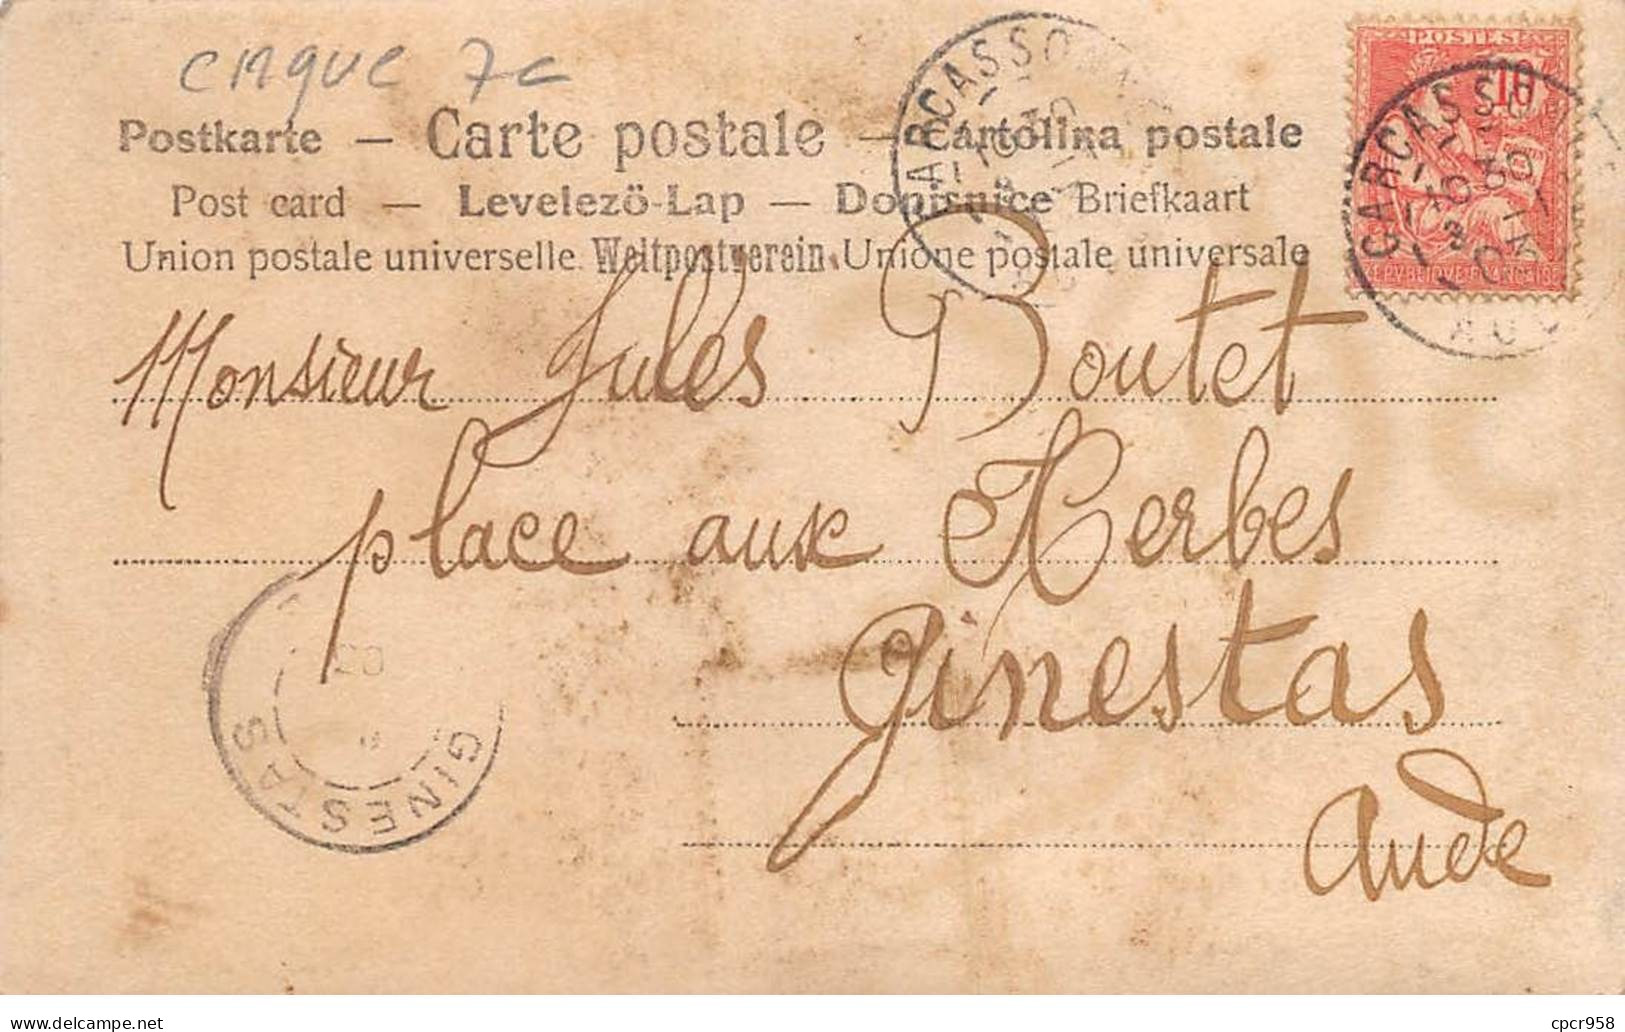 cirque 7c
POSTES
10
CARCASSONNE
CARCASSONNE
10 30
AUDE
REPUBLIQUE FRANCAISE
Postkarte — Carte postale — Cartolina postale
Post card — Levelezö-Lap — Dopisnice Briefkaart
Union postale universelle. Weltpostverein. Unione postale universale
Monsieur Jules Boutet
place aux Herbes
Ginestas
Aude
GINESTAS
delcampe.net
cpcr958